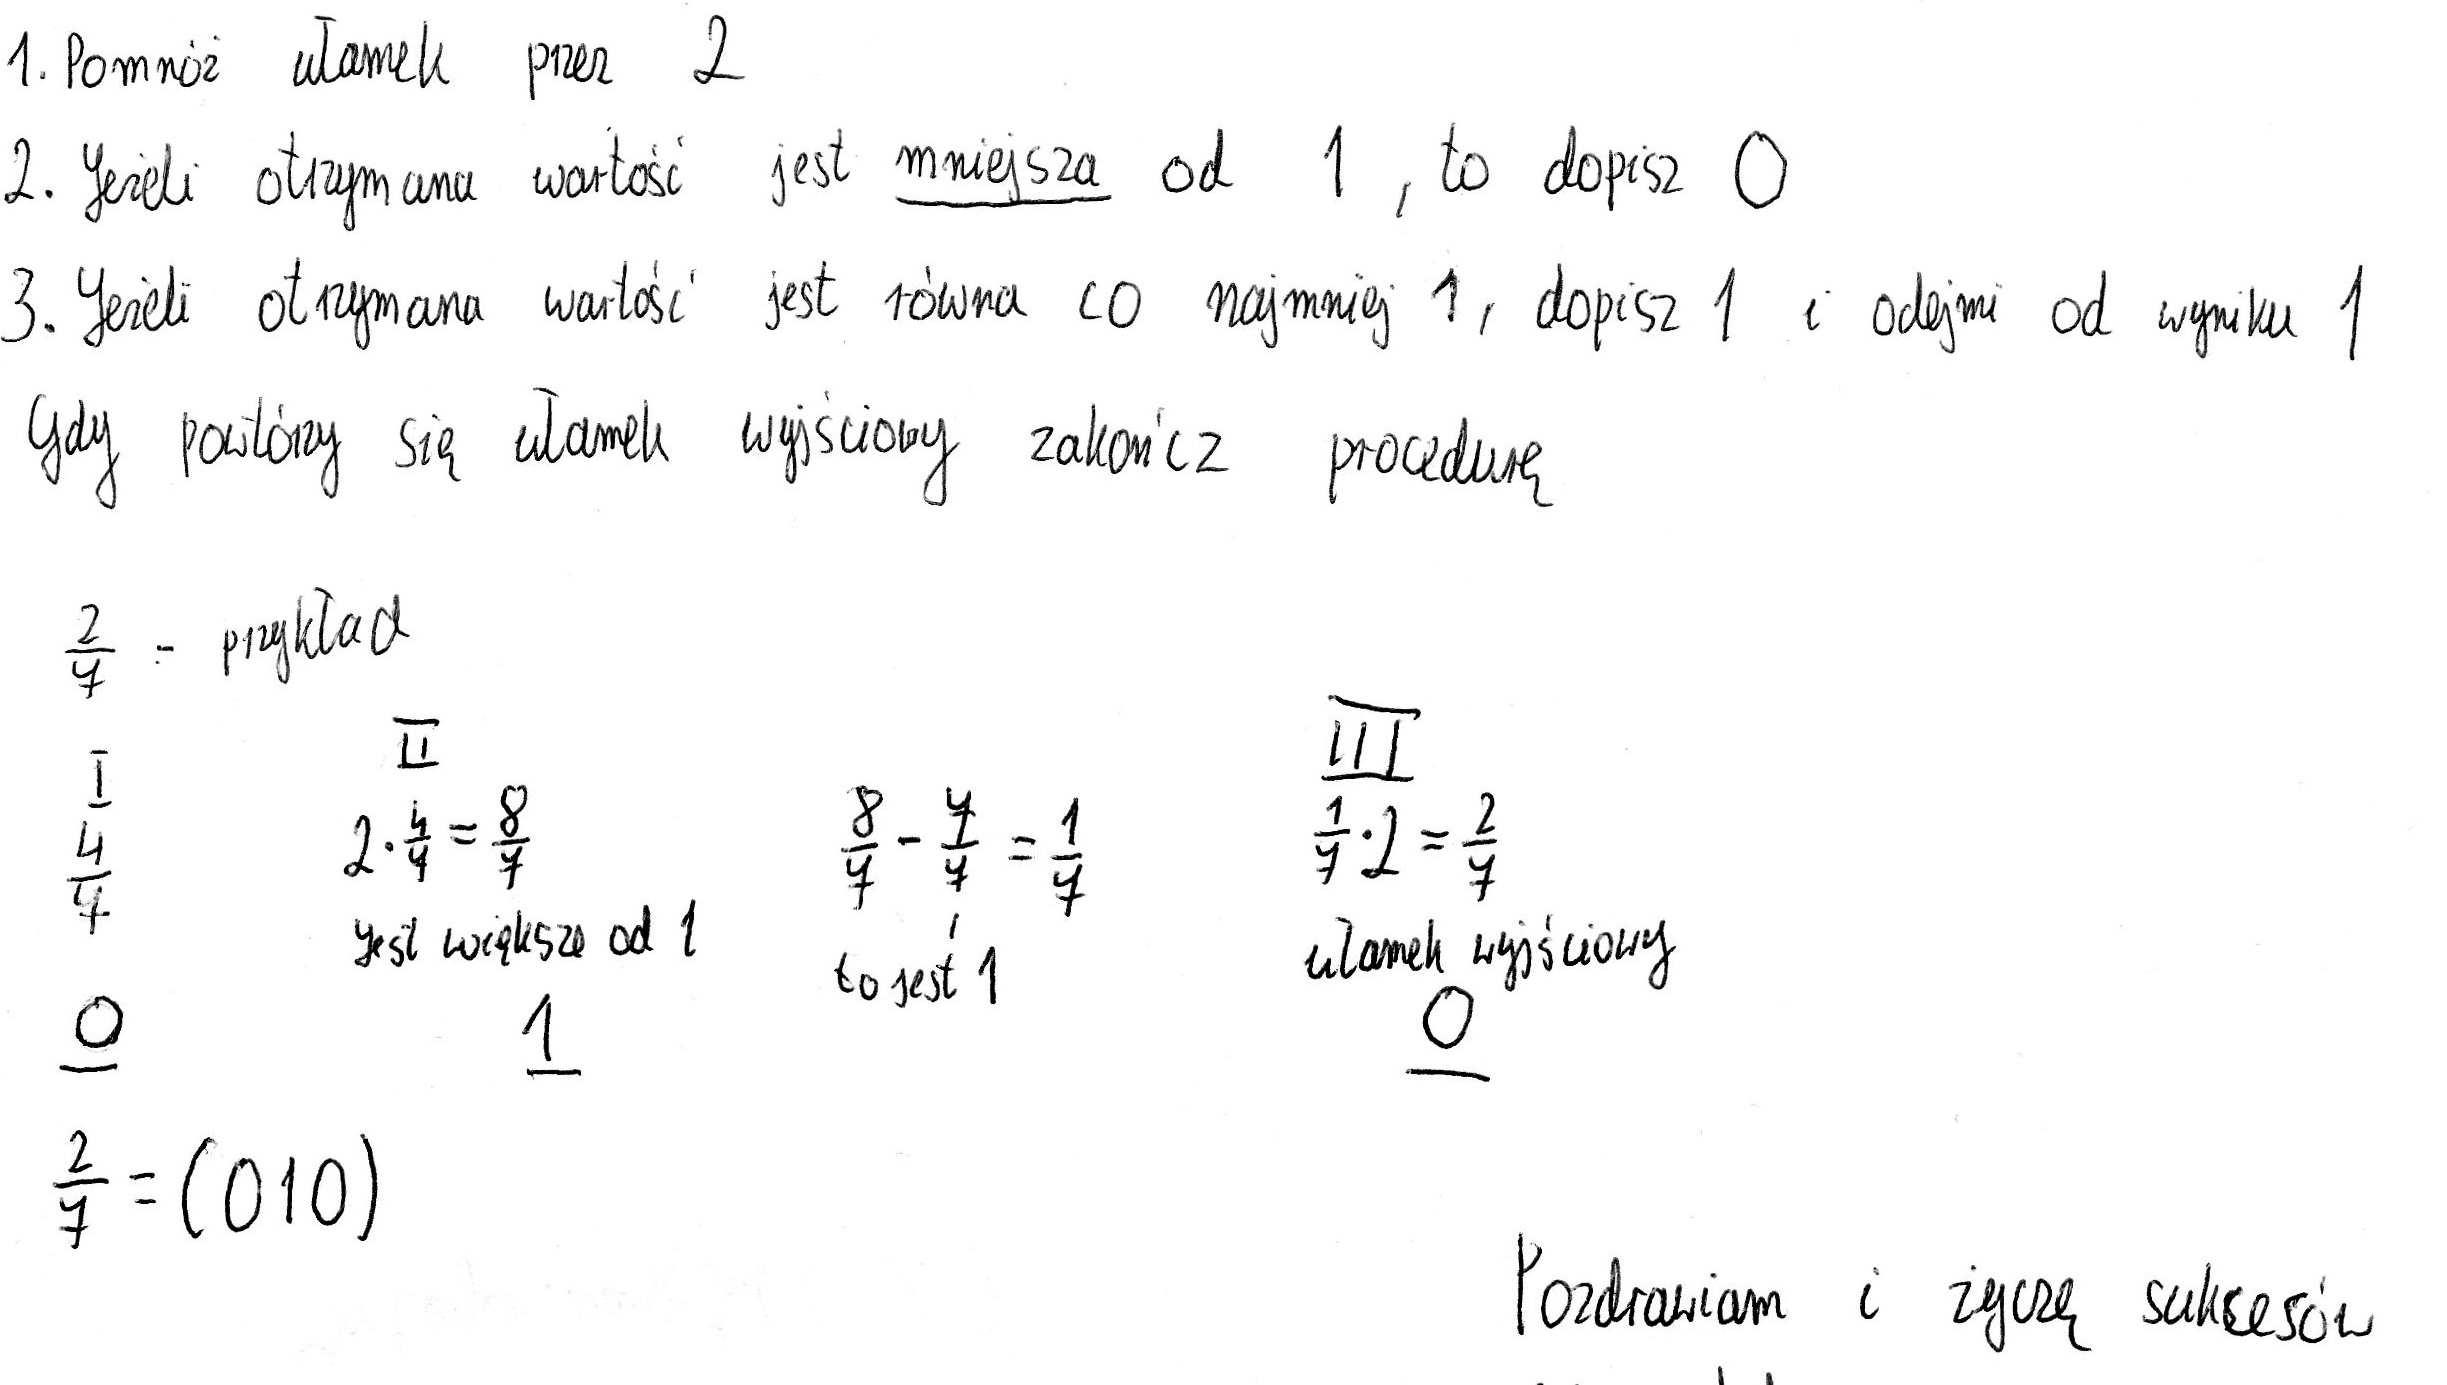 1. Pomnóż ułamek przez 2
2. Jeżeli otrzymana wartość jest mniejsza od 1, to dopisz 0
3. Jeżeli otrzymana wartość jest równa co najmniej 1, dopisz 1 i odejmi od wyniku 1
Gdy powtórzy się ułamek wyjściowy zakończ procedurę
2/7 - przykład
I II III
4/7 2·4/7=8/7 8/7-7/7=1/7 1/7·2=2/7
Jest większe od 1 to jest 1 ułamek wyjściowy
0 1 0
2/7=(010)
Pozdrawiam i życzę sukcesów